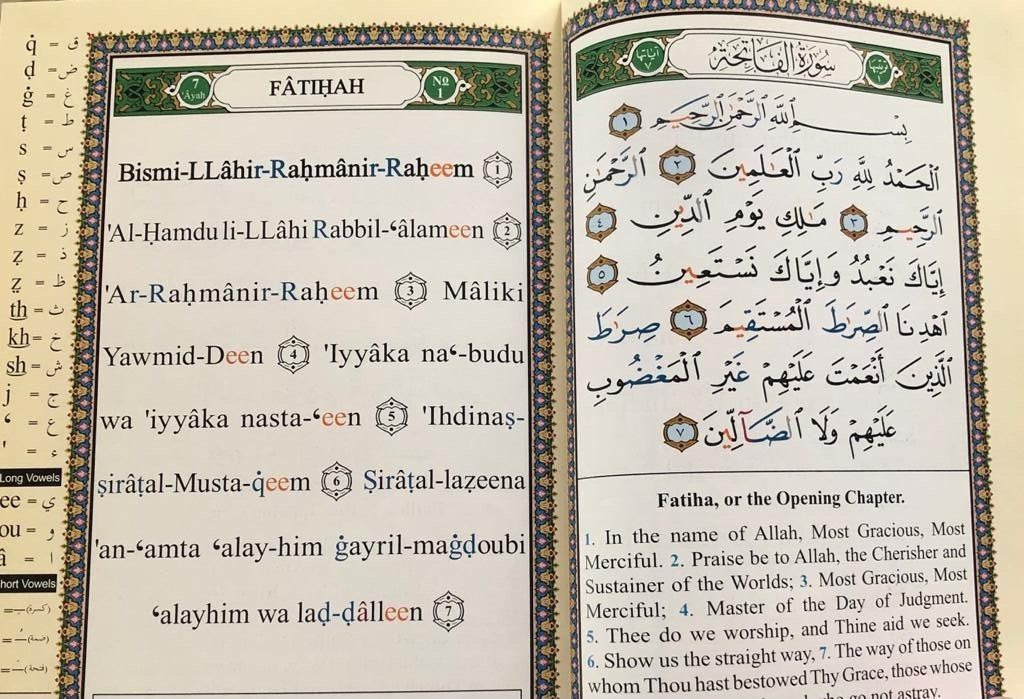 q̇ = ق
ḍ = ض
ġ = غ
ṭ = ط
s = س
ṣ = ص
ḥ = ح
z = ز
ẓ = ذ
ẓ = ظ
th = ث
kh = خ
sh = ش
j = ج
‘ = ع
' = ء
Long Vowels
ee = ي
ou = و
â = ا
hort Vowels
(كسرة)
(ضمة)
(فتحة)
7 'Âyah
FÂTIḤAH
No 1
Bismi-LLâhir-Raḥmânir-Raḥeem 1
'Al-Ḥamdu li-LLâhi Rabbil-‘âlameen 2
'Ar-Raḥmânir-Raḥeem 3 Mâliki
Yawmid-Deen 4 'Iyyâka na‘-budu
wa 'iyyâka nasta-‘een 5 'Ihdinaṣ-
ṣirâṭal-Musta-q̇eem 6 Ṣirâṭal-laẓeena
'an-‘amta ‘alay-him ġayril-maġḍoubi
‘alayhim wa laḍ-ḍâlleen 7
آياتها ٧
سُورَةُ الفَاتِحَةِ
ترتيبها ١
بِسْمِ اللَّهِ الرَّحْمَٰنِ الرَّحِيمِ ١
الْحَمْدُ لِلَّهِ رَبِّ الْعَالَمِينَ ٢ الرَّحْمَٰنِ
الرَّحِيمِ ٣ مَالِكِ يَوْمِ الدِّينِ ٤
إِيَّاكَ نَعْبُدُ وَإِيَّاكَ نَسْتَعِينُ ٥
اهْدِنَا الصِّرَاطَ الْمُسْتَقِيمَ ٦ صِرَاطَ
الَّذِينَ أَنْعَمْتَ عَلَيْهِمْ غَيْرِ الْمَغْضُوبِ
عَلَيْهِمْ وَلَا الضَّآلِّينَ ٧
Fatiha, or the Opening Chapter.
1. In the name of Allah, Most Gracious, Most
Merciful. 2. Praise be to Allah, the Cherisher and
Sustainer of the Worlds; 3. Most Gracious, Most
Merciful; 4. Master of the Day of Judgment.
5. Thee do we worship, and Thine aid we seek.
6. Show us the straight way, 7. The way of those on
whom Thou hast bestowed Thy Grace, those whose
go not astray.